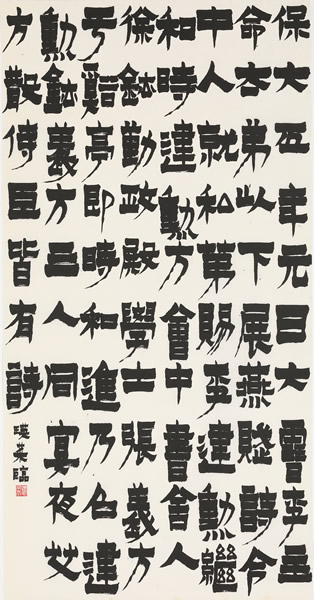 保大五年元日大雪李主
命太弟以下展燕賦詩令
中人就私第賜李建勳繼
和時建勳方會中書舍人
徐鉉勤政殿學士張義方
于谿亭即時和進乃召建
勳鉉義方三人同宴夜艾
方散侍臣皆有詩
英臨